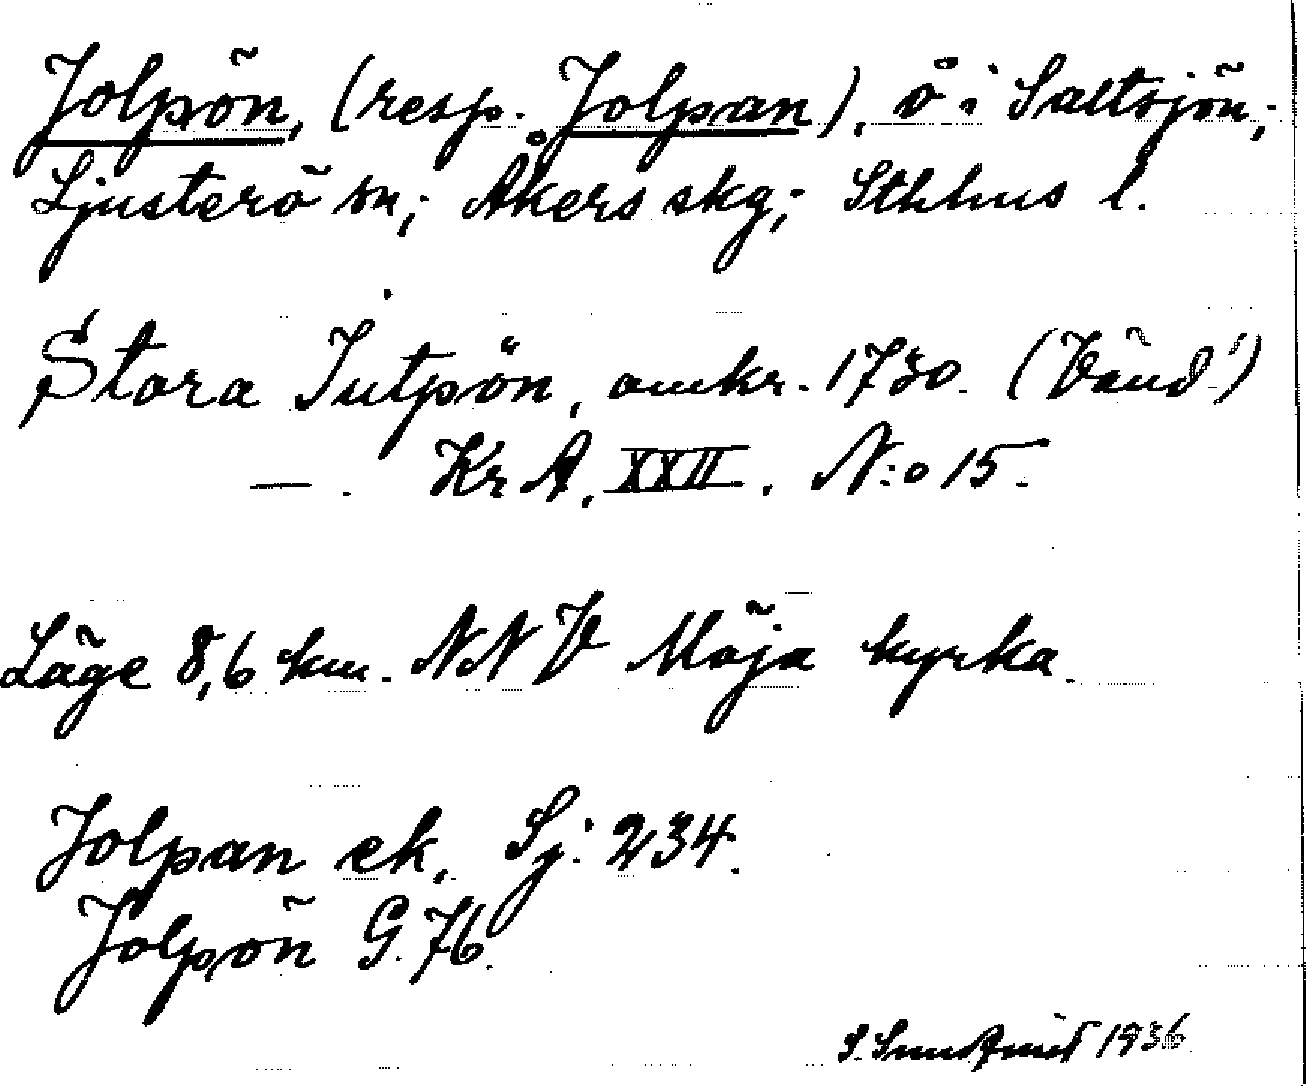 Jolpön, (resp. Jolpan), ö i Saltsjön,
Ljusterö sn; Åkers skg; Sthlms l.
Stora Jutpön, omkr. 1730. (Vänd!)
—. KrA, XXII. N:o 15.
Läge 8,6 km. NNV Möja kyrka.
Jolpan ek. Sj: 234.
Jolpön G. 76.
1936